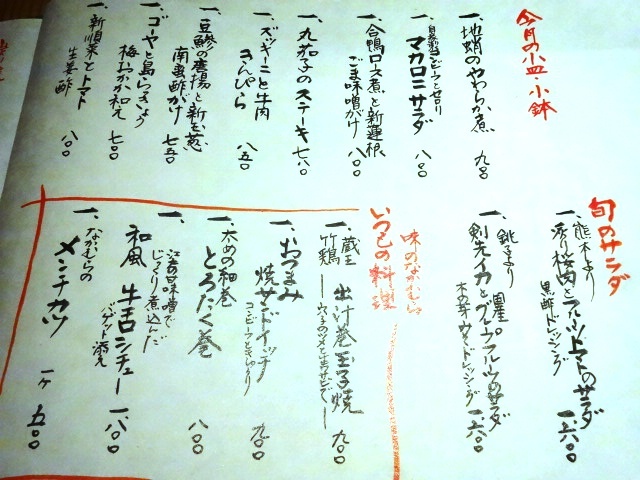 今月の小皿・小鉢
一、地蛸のやわらか煮 九〇〇
一、自家製コンビーフとセロリ
マカロニサラダ 八〇〇
一、合鴨ロース煮と新蓮根
ごま味噌がけ 八〇〇
一、丸茄子のステーキ 七八〇
一、ズッキーニと牛肉
きんぴら 八五〇
一、豆鯵の唐揚と新玉葱
南蛮酢がけ 七五〇
一、ゴーヤと島らっきょう
梅おかか和え 七〇〇
一、新順菜とトマト
生姜酢 八〇〇
旬のサラダ
一、熊本より
香り桜肉とフルーツトマトのサラダ
黒酢ドレッシング 一、六〇〇
一、銚子より
剣先イカとグレープフルーツのサラダ
木の芽ドレッシング 一、六〇〇
味のなかむら
いつもの料理
一、蔵王
竹鶏 出汁巻玉子焼 九〇〇
一、おつまみ
焼サンドイッチ
コンビーフときゅうり 九〇〇
一、太めの細巻
とろたく巻 八〇〇
一、江戸甘味噌で
じっくり煮込んだ
和風 牛舌シチュー
バゲット添え 一、八〇〇
一、なかむらの
メンチカツ 一ヶ 五〇〇